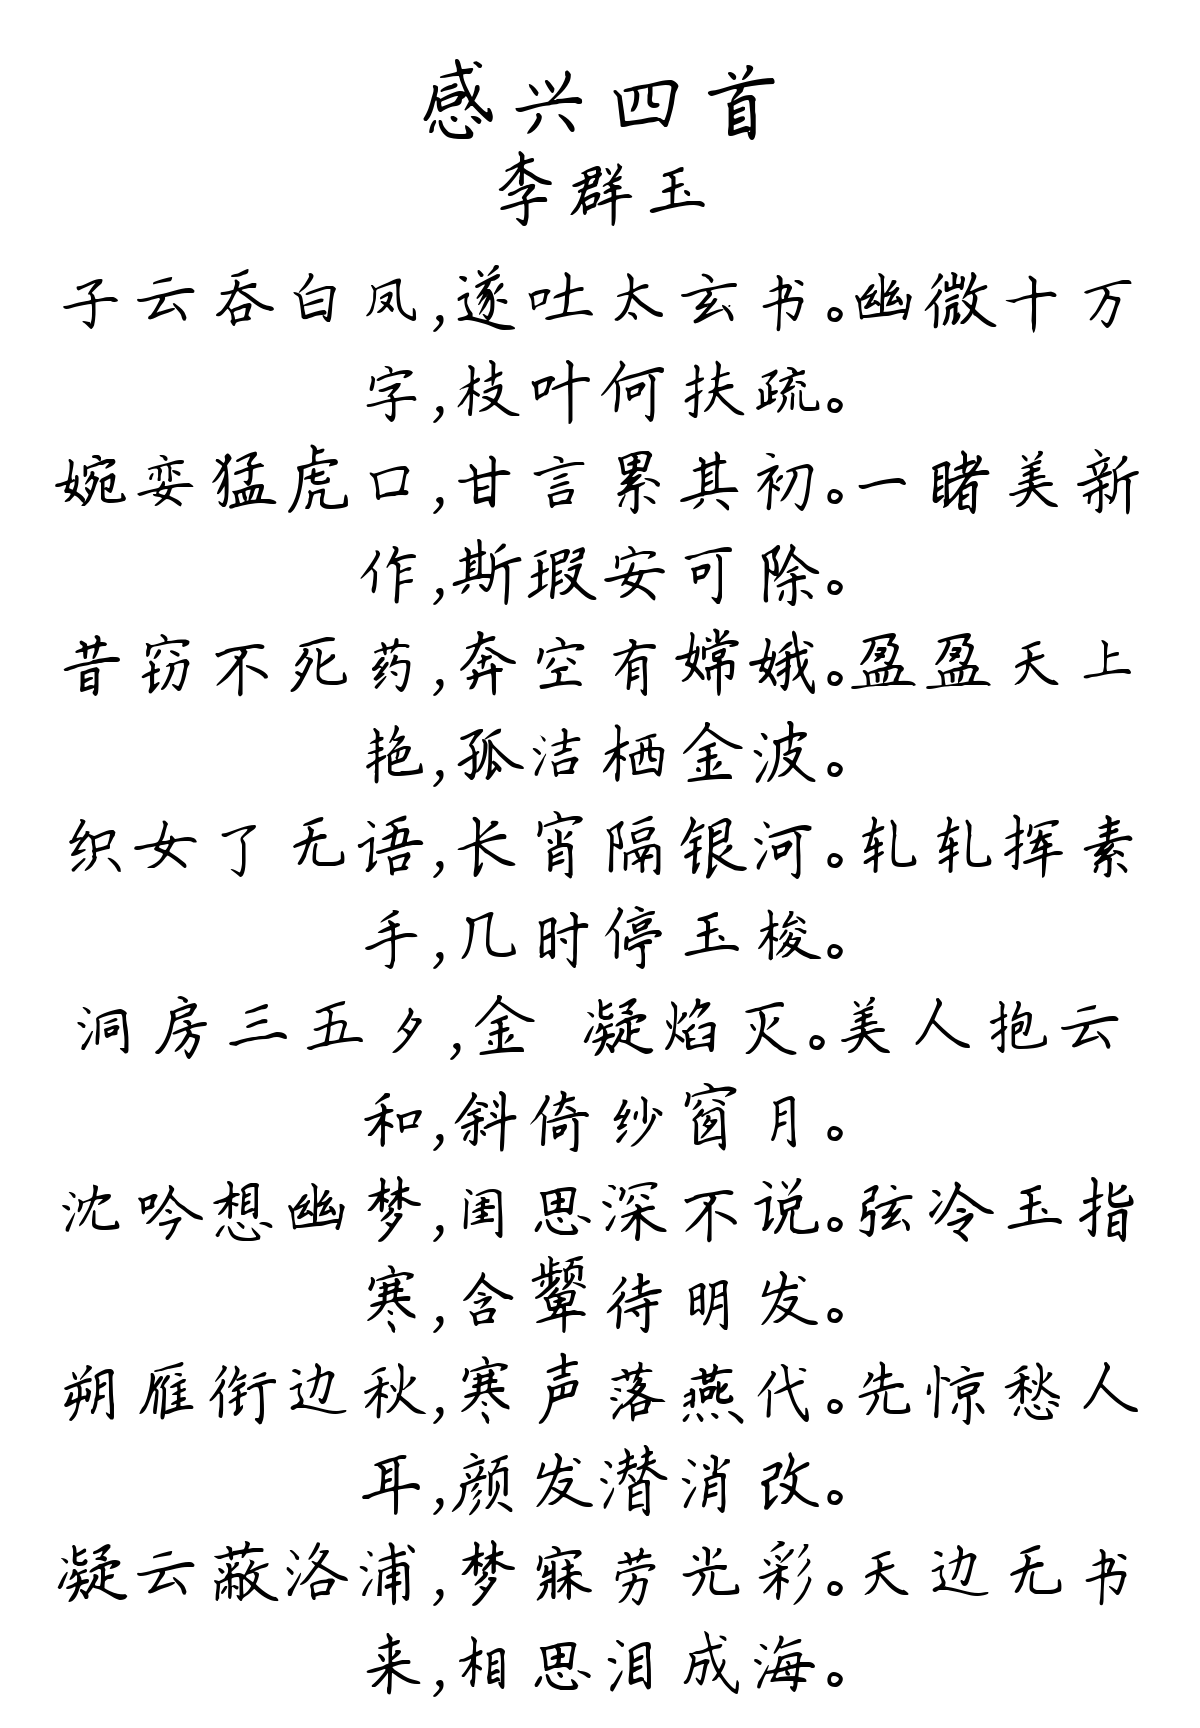 感兴四首
李群玉
子云吞白凤,遂吐太玄书。幽微十万
字,枝叶何扶疏。
婉娈猛虎口,甘言累其初。一睹美新
作,斯瑕安可除。
昔窃不死药,奔空有嫦娥。盈盈天上
艳,孤洁栖金波。
织女了无语,长宵隔银河。轧轧挥素
手,几时停玉梭。
洞房三五夕,金 凝焰灭。美人抱云
和,斜倚纱窗月。
沈吟想幽梦,闺思深不说。弦冷玉指
寒,含颦待明发。
朔雁衔边秋,寒声落燕代。先惊愁人
耳,颜发潜消改。
凝云蔽洛浦,梦寐劳光彩。天边无书
来,相思泪成海。